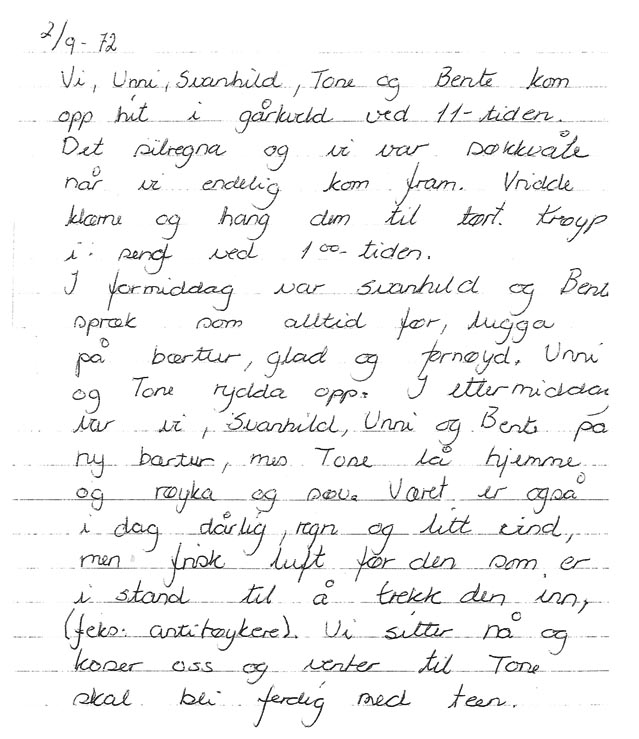 2/9-72
Vi, Unni, Svanhild, Tone og Bente kom
opp hit i gårkveld ved 11-tiden.
Det silregna og vi var søkkvåte
når vi endelig kom fram. Vridde
klærne og hang dem til tørt. Krøyp
i seng ved 1 00-tiden.
I formiddag var Svanhild og Bent
spræk som alltid før, lugga
på bærtur, glad og fornøyd. Unni
og Tone rydda opp. I ettermidda
var vi, Svanhild, Unni og Bente på
ny bærtur, mes Tone lå hjemme
og røyka og sov. Været er også
i dag dårlig, regn og litt vind,
men frisk luft før den som er
i stand til å trekk den inn,
(feks. antirøykere). Vi sitter nå og
koser oss og venter til Tone
skal bli ferdig med teen.